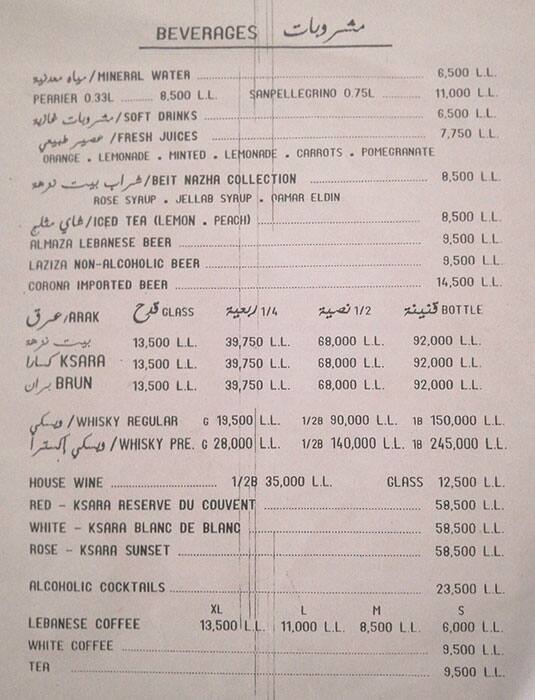 BEVERAGES مشروبات
مياه معدنية/MINERAL WATER 6,500 L.L.
PERRIER 0.33L 8,500 L.L. SANPELLEGRINO 0.75L 11,000 L.L.
مشروبات غازية/SOFT DRINKS 6,500 L.L.
عصير طبيعي/FRESH JUICES 7,750 L.L.
ORANGE . LEMONADE . MINTED . LEMONADE . CARROTS . POMEGRANATE
شراب بيت نزهة/BEIT NAZHA COLLECTION 8,500 L.L.
ROSE SYRUP . JELLAB SYRUP . QAMAR ELDIN
شاي مثلج/ICED TEA (LEMON . PEACH) 8,500 L.L.
ALMAZA LEBANESE BEER 9,500 L.L.
LAZIZA NON-ALCOHOLIC BEER 9,500 L.L.
CORONA IMPORTED BEER 14,500 L.L.
عرق/ARAK قدح GLASS ربعية 1/4 نصية 1/2 قنينة BOTTLE
بيت نزهة 13,500 L.L. 39,750 L.L. 68,000 L.L. 92,000 L.L.
كسارا KSARA 13,500 L.L. 39,750 L.L. 68,000 L.L. 92,000 L.L.
بران BRUN 13,500 L.L. 39,750 L.L. 68,000 L.L. 92,000 L.L.
ويسكي/WHISKY REGULAR G 19,500 L.L. 1/2B 90,000 L.L. 1B 150,000 L.L.
ويسكي إكسترا/WHISKY PRE. G 28,000 L.L. 1/2B 140,000 L.L. 1B 245,000 L.L.
HOUSE WINE 1/2B 35,000 L.L. GLASS 12,500 L.L.
RED - KSARA RESERVE DU COUVENT 58,500 L.L.
WHITE - KSARA BLANC DE BLANC 58,500 L.L.
ROSE - KSARA SUNSET 58,500 L.L.
ALCOHOLIC COCKTAILS 23,500 L.L.
XL L M S
LEBANESE COFFEE 13,500 L.L. 11,000 L.L. 8,500 L.L. 6,000 L.L.
WHITE COFFEE 9,500 L.L.
TEA 9,500 L.L.